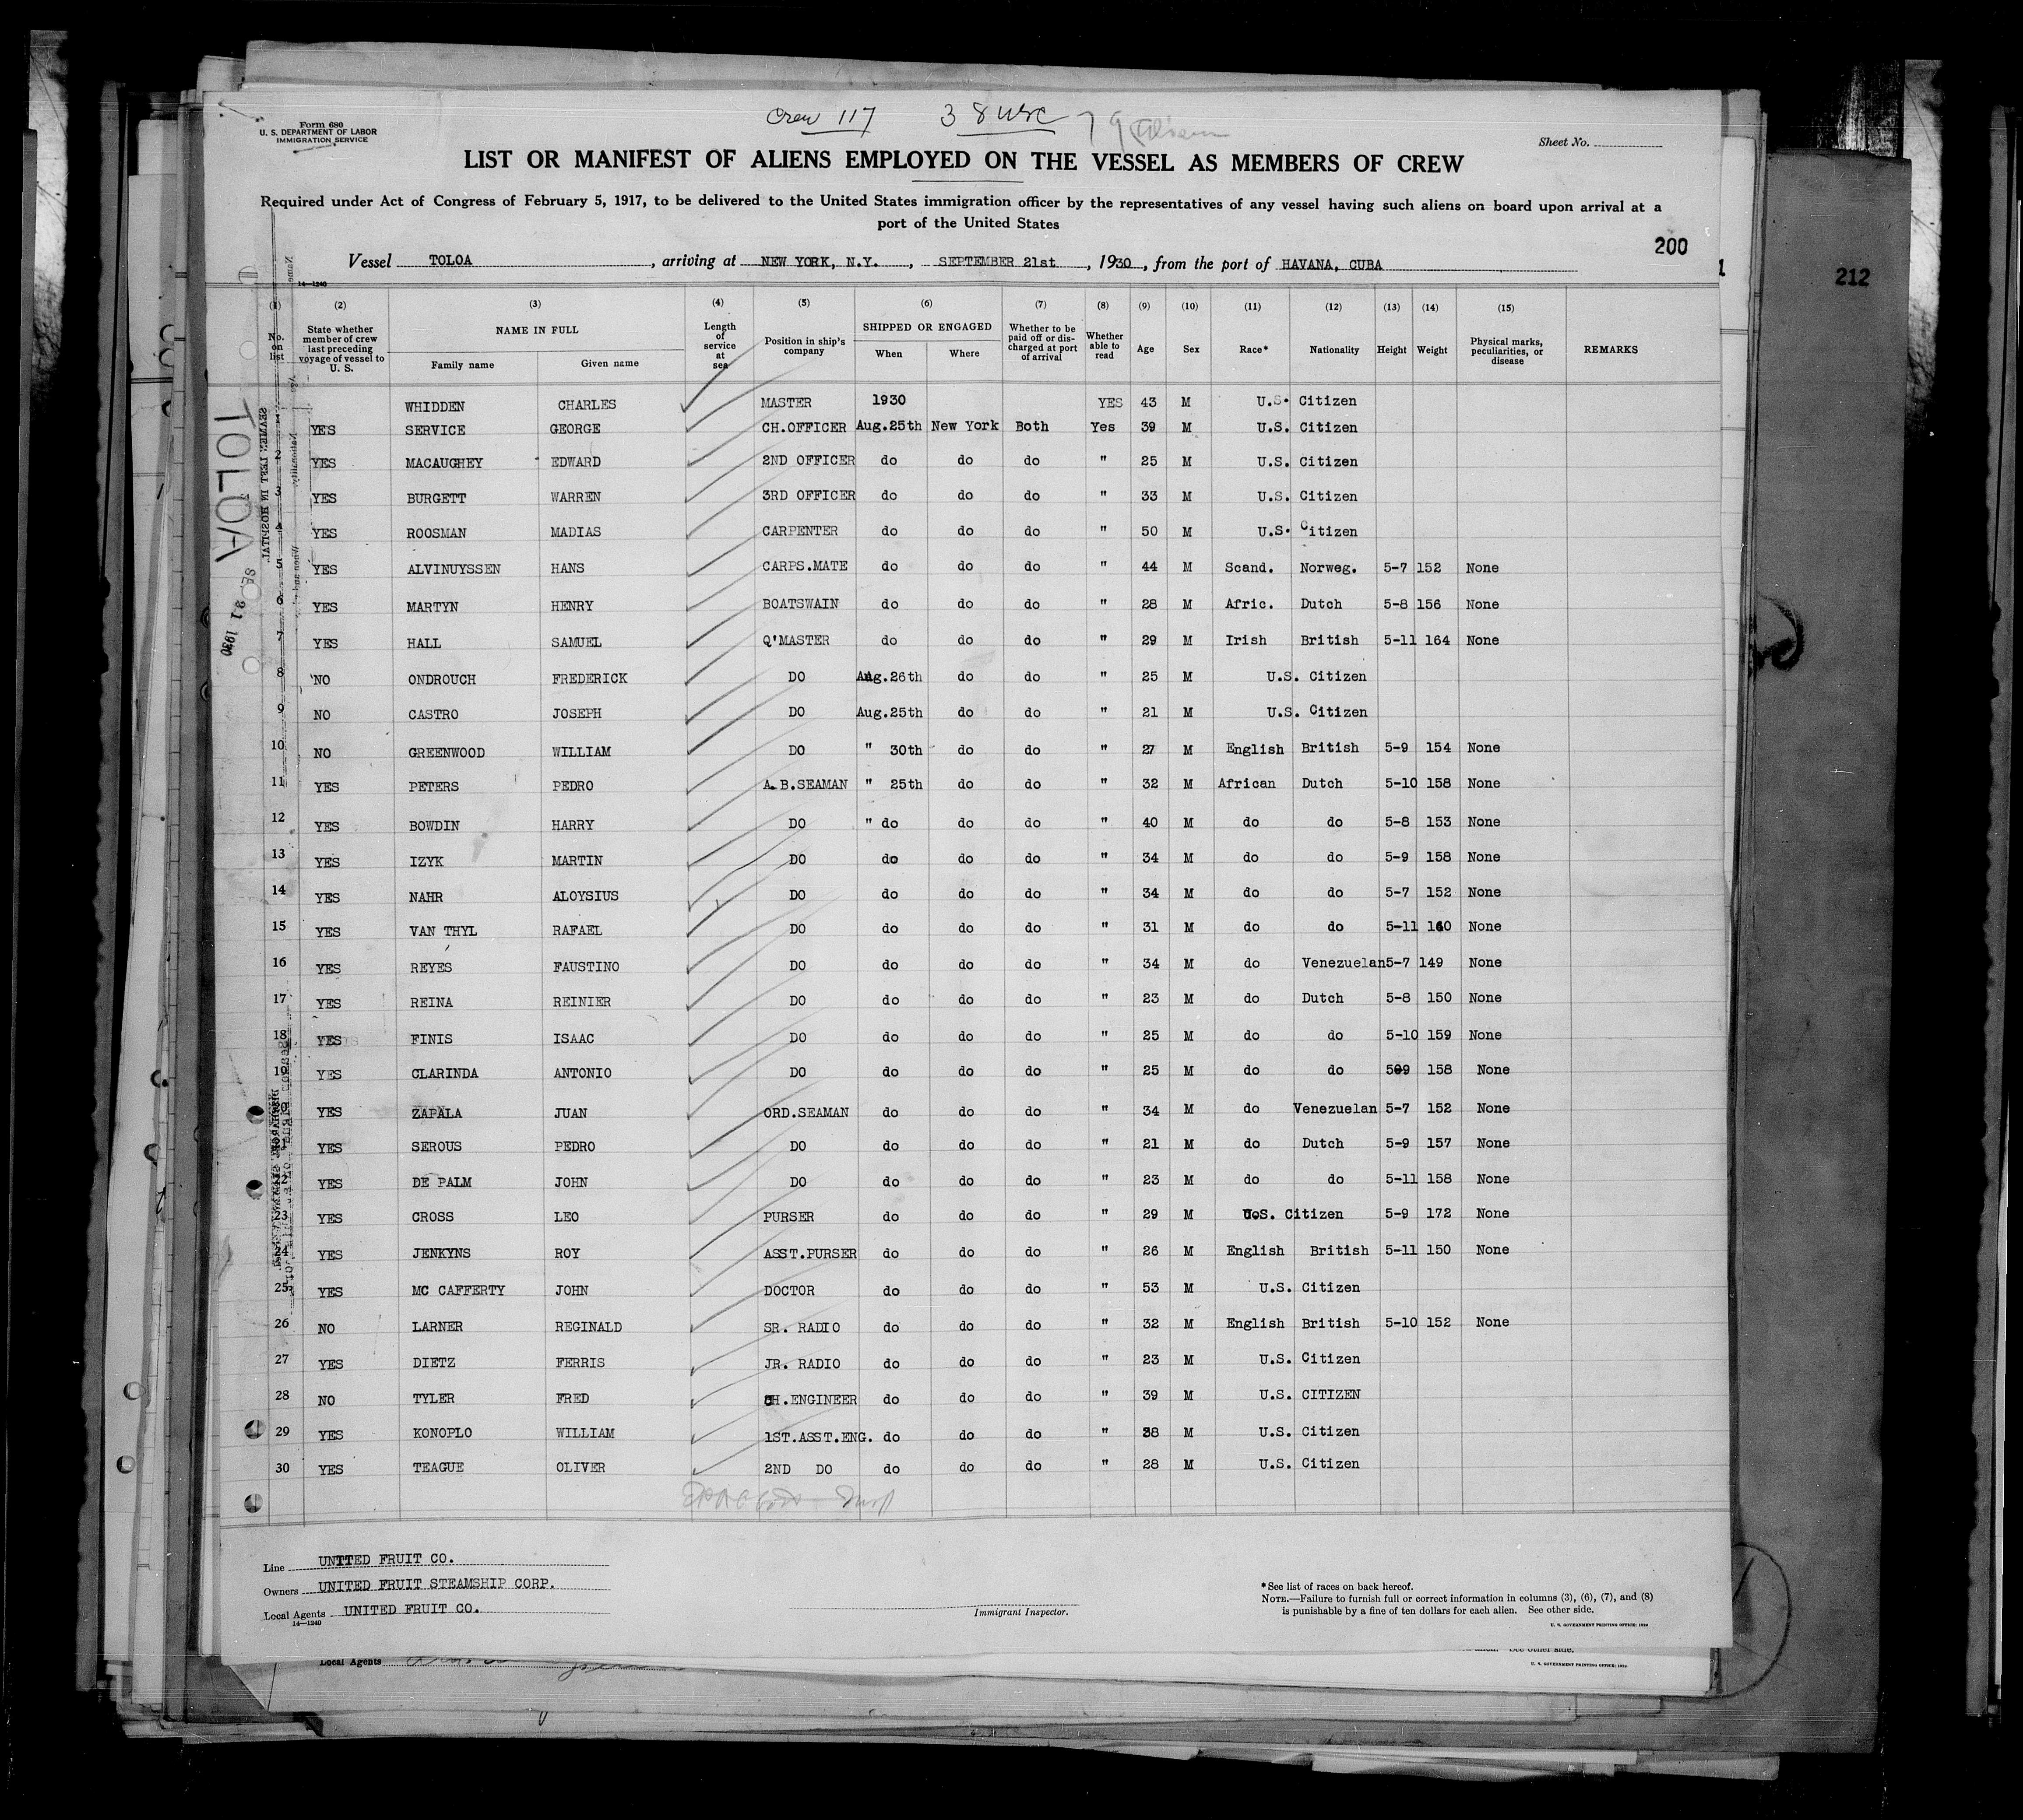 Crew 117 38 USC 79 Aliens
Form 680
U. S. DEPARTMENT OF LABOR
IMMIGRATION SERVICE
Sheet No.
LIST OR MANIFEST OF ALIENS EMPLOYED ON THE VESSEL AS MEMBERS OF CREW
Required under Act of Congress of February 5, 1917, to be delivered to the United States immigration officer by the representatives of any vessel having such aliens on board upon arrival at a
port of the United States
200
212
1
Vessel TOLOA, arriving at NEW YORK, N.Y., SEPTEMBER 21st, 1930, from the port of HAVANA, CUBA
14—1240
(1) (2) (3) (4) (5) (6) (7) (8) (9) (10) (11) (12) (13) (14) (15)
No. on list State whether member of crew last preceding voyage of vessel to U. S. NAME IN FULL Family name Given name Length of service at sea Position in ship's company SHIPPED OR ENGAGED When Where Whether to be paid off or discharged at port of arrival Whether able to read Age Sex Race* Nationality Height Weight Physical marks, peculiarities, or disease REMARKS
WHIDDEN CHARLES MASTER 1930 YES 43 M U.S. Citizen
1 YES SERVICE GEORGE CH.OFFICER Aug.25th New York Both Yes 39 M U.S. Citizen
2 YES MACAUGHEY EDWARD 2ND OFFICER do do do " 25 M U.S. Citizen
3 YES BURGETT WARREN 3RD OFFICER do do do " 33 M U.S. Citizen
4 YES ROOSMAN MADIAS CARPENTER do do do " 50 M U.S. Citizen
5 YES ALVINUYSSEN HANS CARPS.MATE do do do " 44 M Scand. Norweg. 5-7 152 None
6 YES MARTYN HENRY BOATSWAIN do do do " 28 M Afric. Dutch 5-8 156 None
7 YES HALL SAMUEL Q'MASTER do do do " 29 M Irish British 5-11 164 None
8 NO ONDROUCH FREDERICK DO Aug.26th do do " 25 M U.S. Citizen
9 NO CASTRO JOSEPH DO Aug.25th do do " 21 M U.S. Citizen
10 NO GREENWOOD WILLIAM DO " 30th do do " 27 M English British 5-9 154 None
11 YES PETERS PEDRO A.B.SEAMAN " 25th do do " 32 M African Dutch 5-10 158 None
12 YES BOWDIN HARRY DO " do do do " 40 M do do 5-8 153 None
13 YES IZYK MARTIN DO do do do " 34 M do do 5-9 158 None
14 YES NAHR ALOYSIUS DO do do do " 34 M do do 5-7 152 None
15 YES VAN THYL RAFAEL DO do do do " 31 M do do 5-11 160 None
16 YES REYES FAUSTINO DO do do do " 34 M do Venezuelan 5-7 149 None
17 YES REINA REINIER DO do do do " 23 M do Dutch 5-8 150 None
18 YES FINIS ISAAC DO do do do " 25 M do do 5-10 159 None
19 YES CLARINDA ANTONIO DO do do do " 25 M do do 5-9 158 None
20 YES ZAPALA JUAN ORD.SEAMAN do do do " 34 M do Venezuelan 5-7 152 None
21 YES SEROUS PEDRO DO do do do " 21 M do Dutch 5-9 157 None
22 YES DE PALM JOHN DO do do do " 23 M do do 5-11 158 None
23 YES CROSS LEO PURSER do do do " 29 M U.S. Citizen 5-9 172 None
24 YES JENKYNS ROY ASST.PURSER do do do " 26 M English British 5-11 150 None
25 YES MC CAFFERTY JOHN DOCTOR do do do " 53 M U.S. Citizen
26 NO LARNER REGINALD SR. RADIO do do do " 32 M English British 5-10 152 None
27 YES DIETZ FERRIS JR. RADIO do do do " 23 M U.S. Citizen
28 NO TYLER FRED CH.ENGINEER do do do " 39 M U.S. CITIZEN
29 YES KONOPLO WILLIAM 1ST.ASST.ENG. do do do " 38 M U.S. Citizen
30 YES TEAGUE OLIVER 2ND DO do do do " 28 M U.S. Citizen
TOLOA
SEAMEN LEFT IN HOSPITAL
Line UNITED FRUIT CO.
Owners UNITED FRUIT STEAMSHIP CORP.
Local Agents UNITED FRUIT CO.
14—1240
Immigrant Inspector.
*See list of races on back hereof.
NOTE.—Failure to furnish full or correct information in columns (3), (6), (7), and (8)
is punishable by a fine of ten dollars for each alien. See other side.
U. S. GOVERNMENT PRINTING OFFICE: 1930
See other side.
Local Agents
U. S. GOVERNMENT PRINTING OFFICE: 1930